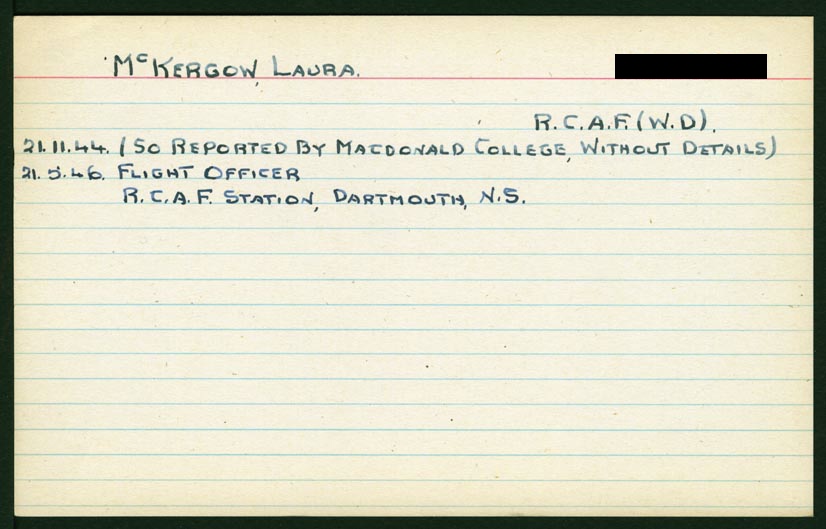 McKERGOW, LAURA.
R.C.A.F. (W.D).
21.11.44. (SO REPORTED BY MACDONALD COLLEGE, WITHOUT DETAILS)
21.5.46. FLIGHT OFFICER
R.C.A.F. STATION, DARTMOUTH, N.S.